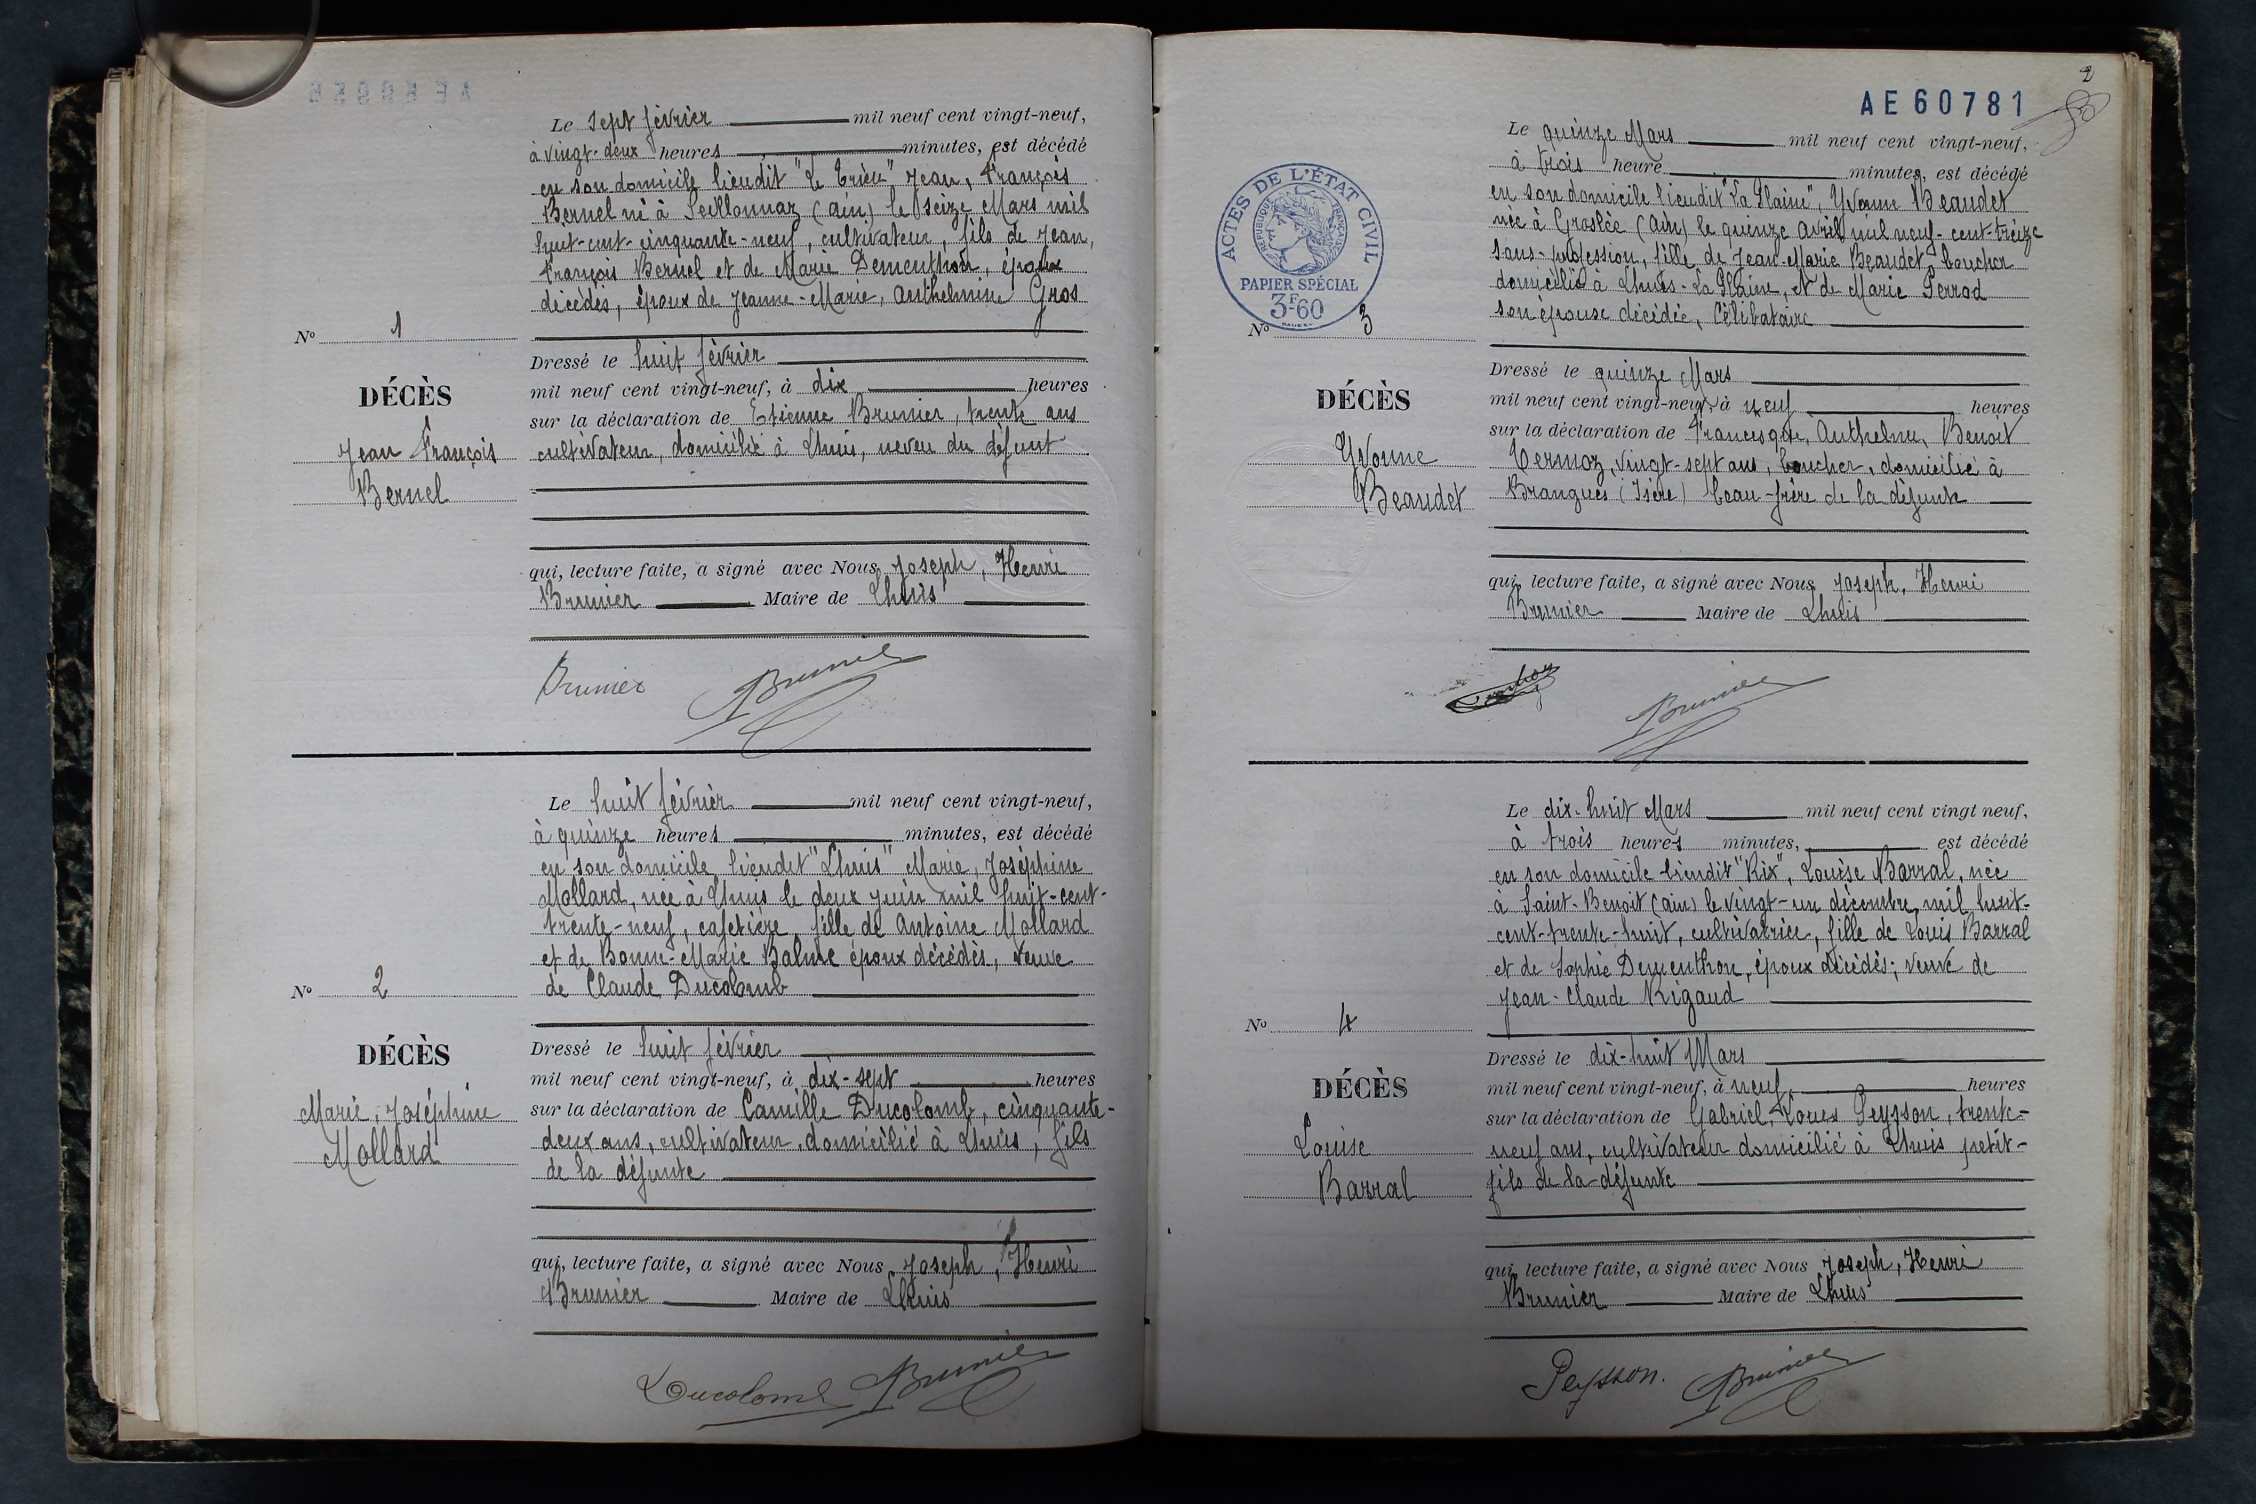 Le sept février mil neuf cent vingt-neuf,
à vingt-deux heures minutes, est décédé
en son domicile lieudit "Le Trieu" Jean, François
Bernel né à Seillonnaz (Ain) le seize Mars mil
huit-cent-cinquante-neuf, cultivateur, fils de Jean,
François Bernel et de Marie Dementhon, époux
décédés, époux de Jeanne-Marie, Anthelmine Gros
No 1
Dressé le huit février
mil neuf cent vingt-neuf, à dix heures
DÉCÈS
sur la déclaration de Etienne Brunier, trente ans
Jean François
cultivateur, domicilié à Lhuis, neveu du défunt
Bernel
qui, lecture faite, a signé avec Nous Joseph, Henri
Brunier Maire de Lhuis
Brunier Brunier
Le huit février mil neuf cent vingt-neuf,
à quinze heures minutes, est décédé
en son domicile lieudit "Lhuis" Marie, Joséphine
Mollard, née à Lhuis le deux juin mil huit-cent-
trente-neuf, cafetière, fille de Antoine Mollard
et de Bonne-Marie Balme époux décédés, veuve
No 2
de Claude Ducolomb
Dressé le huit février
DÉCÈS
mil neuf cent vingt-neuf, à dix-sept heures
Marie, Joséphine
sur la déclaration de Camille Ducolomb, cinquante-
Mollard
deux ans, cultivateur, domicilié à Lhuis, fils
de la défunte
qui, lecture faite, a signé avec Nous Joseph, Henri
Brunier Maire de Lhuis
Ducolomb Brunier
2
AE60781
Le quinze Mars mil neuf cent vingt-neuf,
à trois heure minutes, est décédé
en son domicile lieudit "La Plaine", Yvonne Beaudet
née à Groslée (Ain) le quinze avril mil neuf-cent-treize
sans-profession, fille de Jean-Marie Beaudet boucher
domicilié à Lhuis-La Plaine, et de Marie Perrod
son épouse décédée, Célibataire
ACTES DE L'ÉTAT CIVIL
RÉPUBLIQUE FRANÇAISE
PAPIER SPÉCIAL
3F60
No 3
Dressé le quinze Mars
mil neuf cent vingt-neuf, à neuf heures
DÉCÈS
sur la déclaration de Anthelme, Benoit
Yvonne
Termoz, vingt-sept ans, boucher, domicilié à
Beaudet
Brangues (Isère) beau-frère de la défunte
qui, lecture faite, a signé avec Nous Joseph, Henri
Brunier Maire de Lhuis
Brunier
Le dix-huit Mars mil neuf cent vingt neuf,
à trois heures minutes, est décédé
en son domicile lieudit "Rix", Louise Barral, née
à Saint-Benoit (Ain) le vingt-un décembre mil huit-
cent-trente-huit, cultivatrice, fille de Louis Barral
et de Sophie Dementhon, époux décédés; veuve de
Jean-Claude Rigaud
No 4
Dressé le dix-huit Mars
DÉCÈS
mil neuf cent vingt-neuf, à neuf heures
sur la déclaration de Gabriel, Louis Peysson, trente-
Louise
neuf ans, cultivateur domicilié à Lhuis petit-
Barral
fils de la défunte
qui, lecture faite, a signé avec Nous Joseph, Henri
Brunier Maire de Lhuis
Peysson. Brunier